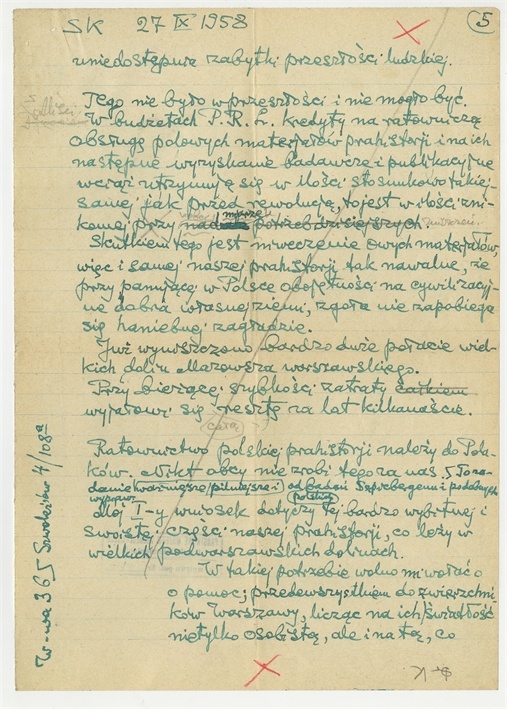 SK 27 IX 1958
5
uniedostępure zabytki przeszłości ludzkiej.
Tego nie było w przeszłości i nie mogło być.
W budżetach P. R. L. kredyty na ratowniczą
obsługę polowych materjałów prahistorji i na ich
następne wyzyskanie badawcze i publikacyjne
wciąż utrzymują się w ilości stosunkowo takiej-
samej jak przed rewolucją, to jest w ilości zni-
komej przy potrzeb dzisiejszych
Skutkiem tego jest niweczenie owych materjałów,
więc i samej naszej prahistorji tak nawalne, że
przy panującej w Polsce obojętności na cywilizacyj-
ne dobra własnej ziemi, zgoła nie zapobiega
się haniebnej zagładzie.
Już wyniszczono bardzo duże połacie wiel-
kich dolin Mazowsza warszawskiego.
Przy bieżącej szybkości zatraty całkiem
wyjałowi się resztę za lat kilkanaście.
całą
Ratownictwo polskiej prahistorji należy do Pola-
ków. Nikt obcy nie zrobi tego za nas. To za-
danie ważniejsze i pilniejsze i od badań Szpicbergenu i podobnych
wypraw polskich
Mój I-y wniosek dotyczy tej bardzo wybitnej i
swoistej części naszej prahistorji, co leży w
wielkich podwarszawskich dolinach.
W takiej potrzebie wolno mi wołać o
o pomoc; przedewszystkiem do zwierzchni-
ków Warszawy, licząc na ich światłość
nietylko osobistą, ale i na tę, co
W-wa 365 Szwoleżerów 4/108a